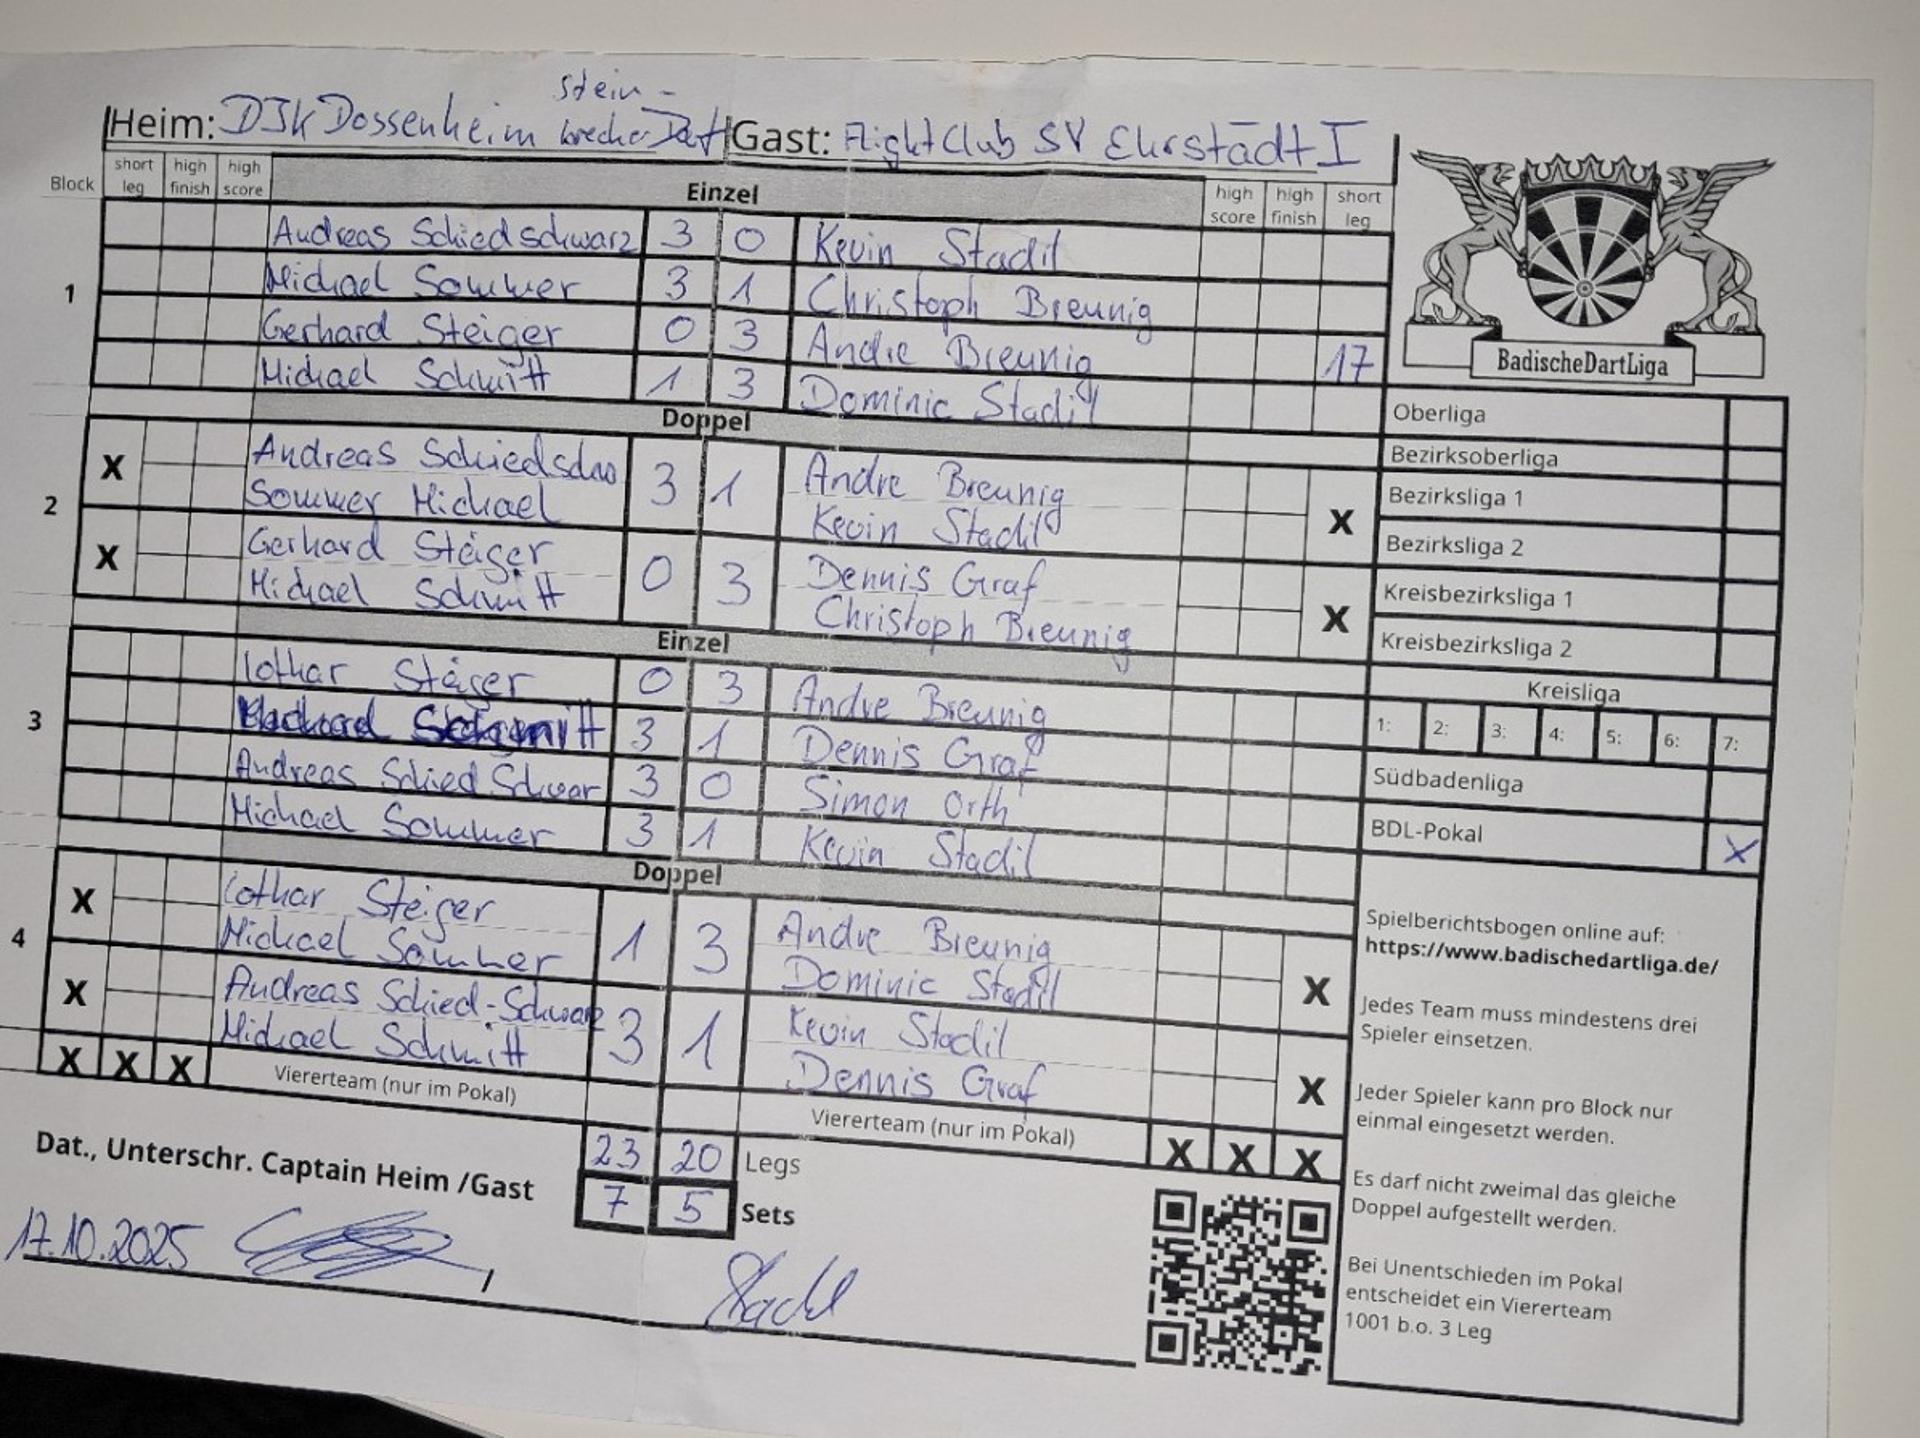 stein-
Heim: DJK Dossenheim brecher Dart Gast: Flight Club SV Ehrstädt I
Block short leg high finish high score Einzel high score high finish short leg
1
Andreas Schiedschwarz 3 0 Kevin Stadil
Michael Sommer 3 1 Christoph Breunig
Gerhard Steiger 0 3 Andre Breunig 17
Michael Schmitt 1 3 Dominic Stadil
Doppel
2
X Andreas Schiedschw 3 1 Andre Breunig X
Sommer Michael Kevin Stadil
X Gerhard Steiger 0 3 Dennis Graf X
Michael Schmitt Christoph Breunig
Einzel
3
Lothar Steiger 0 3 Andre Breunig
Schmitt 3 1 Dennis Graf
Andreas Schied Schwar 3 0 Simon Orth
Michael Sommer 3 1 Kevin Stadil
Doppel
4
X Lothar Steiger 1 3 Andre Breunig X
Michael Sommer Dominic Stadil
X Andreas Schied-Schwarz 3 1 Kevin Stadil X
Michael Schmitt Dennis Graf
X X X Viererteam (nur im Pokal) Viererteam (nur im Pokal) X X X
23 20 Legs
7 5 Sets
Dat., Unterschr. Captain Heim /Gast
17.10.2025
Stadil
BadischeDartLiga
Oberliga
Bezirksoberliga
Bezirksliga 1
Bezirksliga 2
Kreisbezirksliga 1
Kreisbezirksliga 2
Kreisliga
1: 2: 3: 4: 5: 6: 7:
Südbadenliga
BDL-Pokal X
Spielberichtsbogen online auf:
https://www.badischedartliga.de/
Jedes Team muss mindestens drei
Spieler einsetzen.
Jeder Spieler kann pro Block nur
einmal eingesetzt werden.
Es darf nicht zweimal das gleiche
Doppel aufgestellt werden.
Bei Unentschieden im Pokal
entscheidet ein Viererteam
1001 b.o. 3 Leg